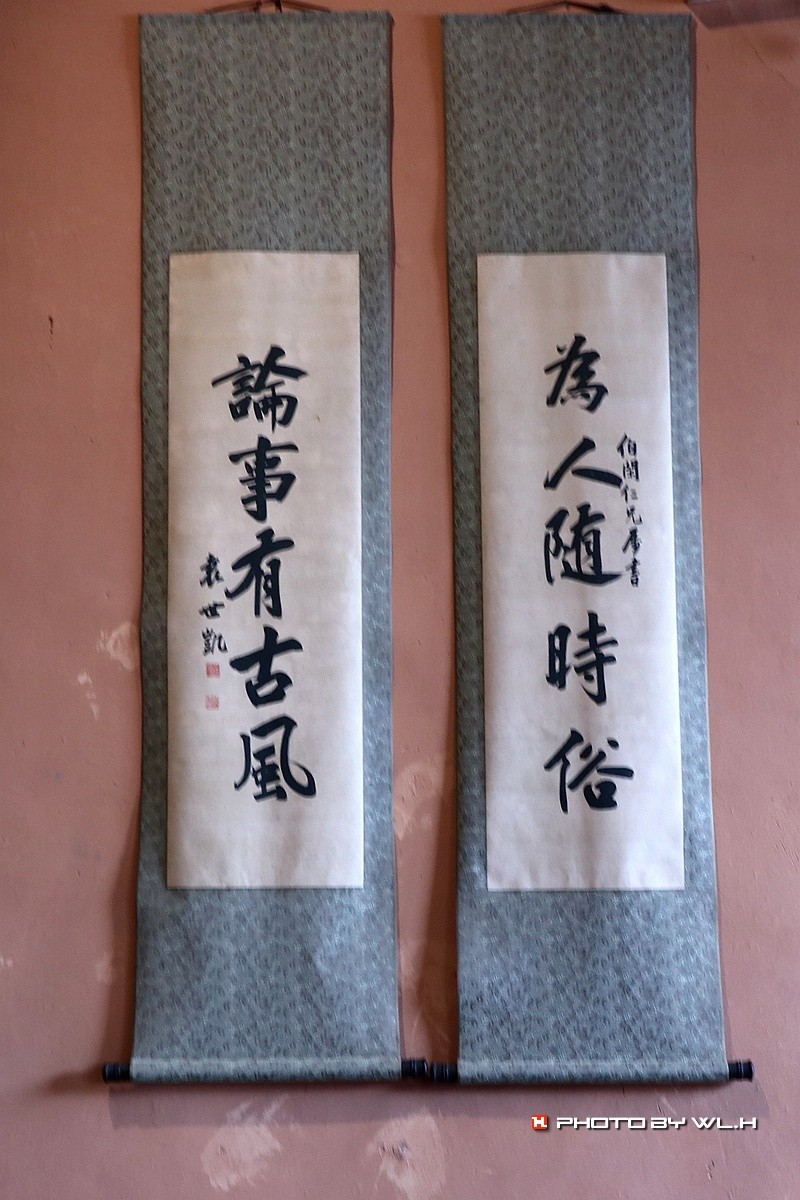 為人随時俗
伯閑仁兄屬書
論事有古風
袁世凱
PHOTO BY WL.H